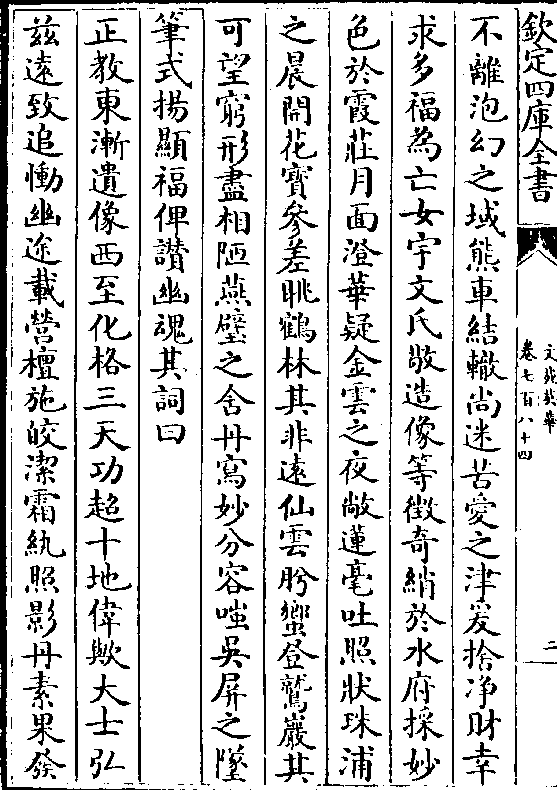 欽定四庫全書
文苑英華
卷七百八十四
三
不離泡幻之域熊車結轍尚迷苦愛之津爰捨净財幸
求多福為亡女宇文氏敬造像等徴奇綃於水府採妙
色於霞莊月面澄華疑金雲之夜敞蓮毫吐照狀珠浦
之晨開花寳參差眺鶴林其非逺仙雲肸蠁登鷲巖其
可望窮形盡相陋燕壁之舍丹寫妙分容嗤吳屏之墜
筆式揚顯福俾讃幽魂其詞曰
正教東漸遺像西至化格三天功超十地偉歟大士弘
兹逺致追慟幽途載營檀施皎潔霜紈照影丹素果發